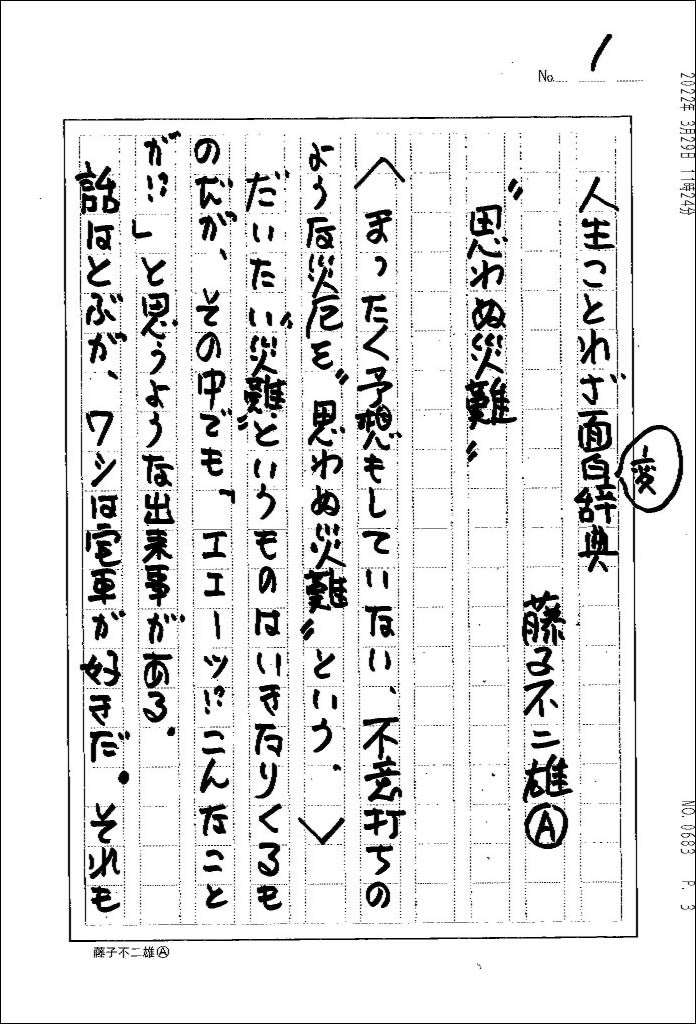 No. 1
2022年 3月29日 11時24分
人生ことわざ面白辞典
変
藤子不二雄Ⓐ
〝思わぬ災難〟
〈まったく予想もしていない、不意打ちの
ような災厄を〝思わぬ災難〟という。〉
だいたい〝災難〟というものはいきなりくるも
のだが、その中でも、「エエーッ!?こんなこと
が!?」と思うような出来事がある。
話はとぶが、ワシは電車が好きだ。それも
NO. 0683 P. 3
藤子不二雄Ⓐ